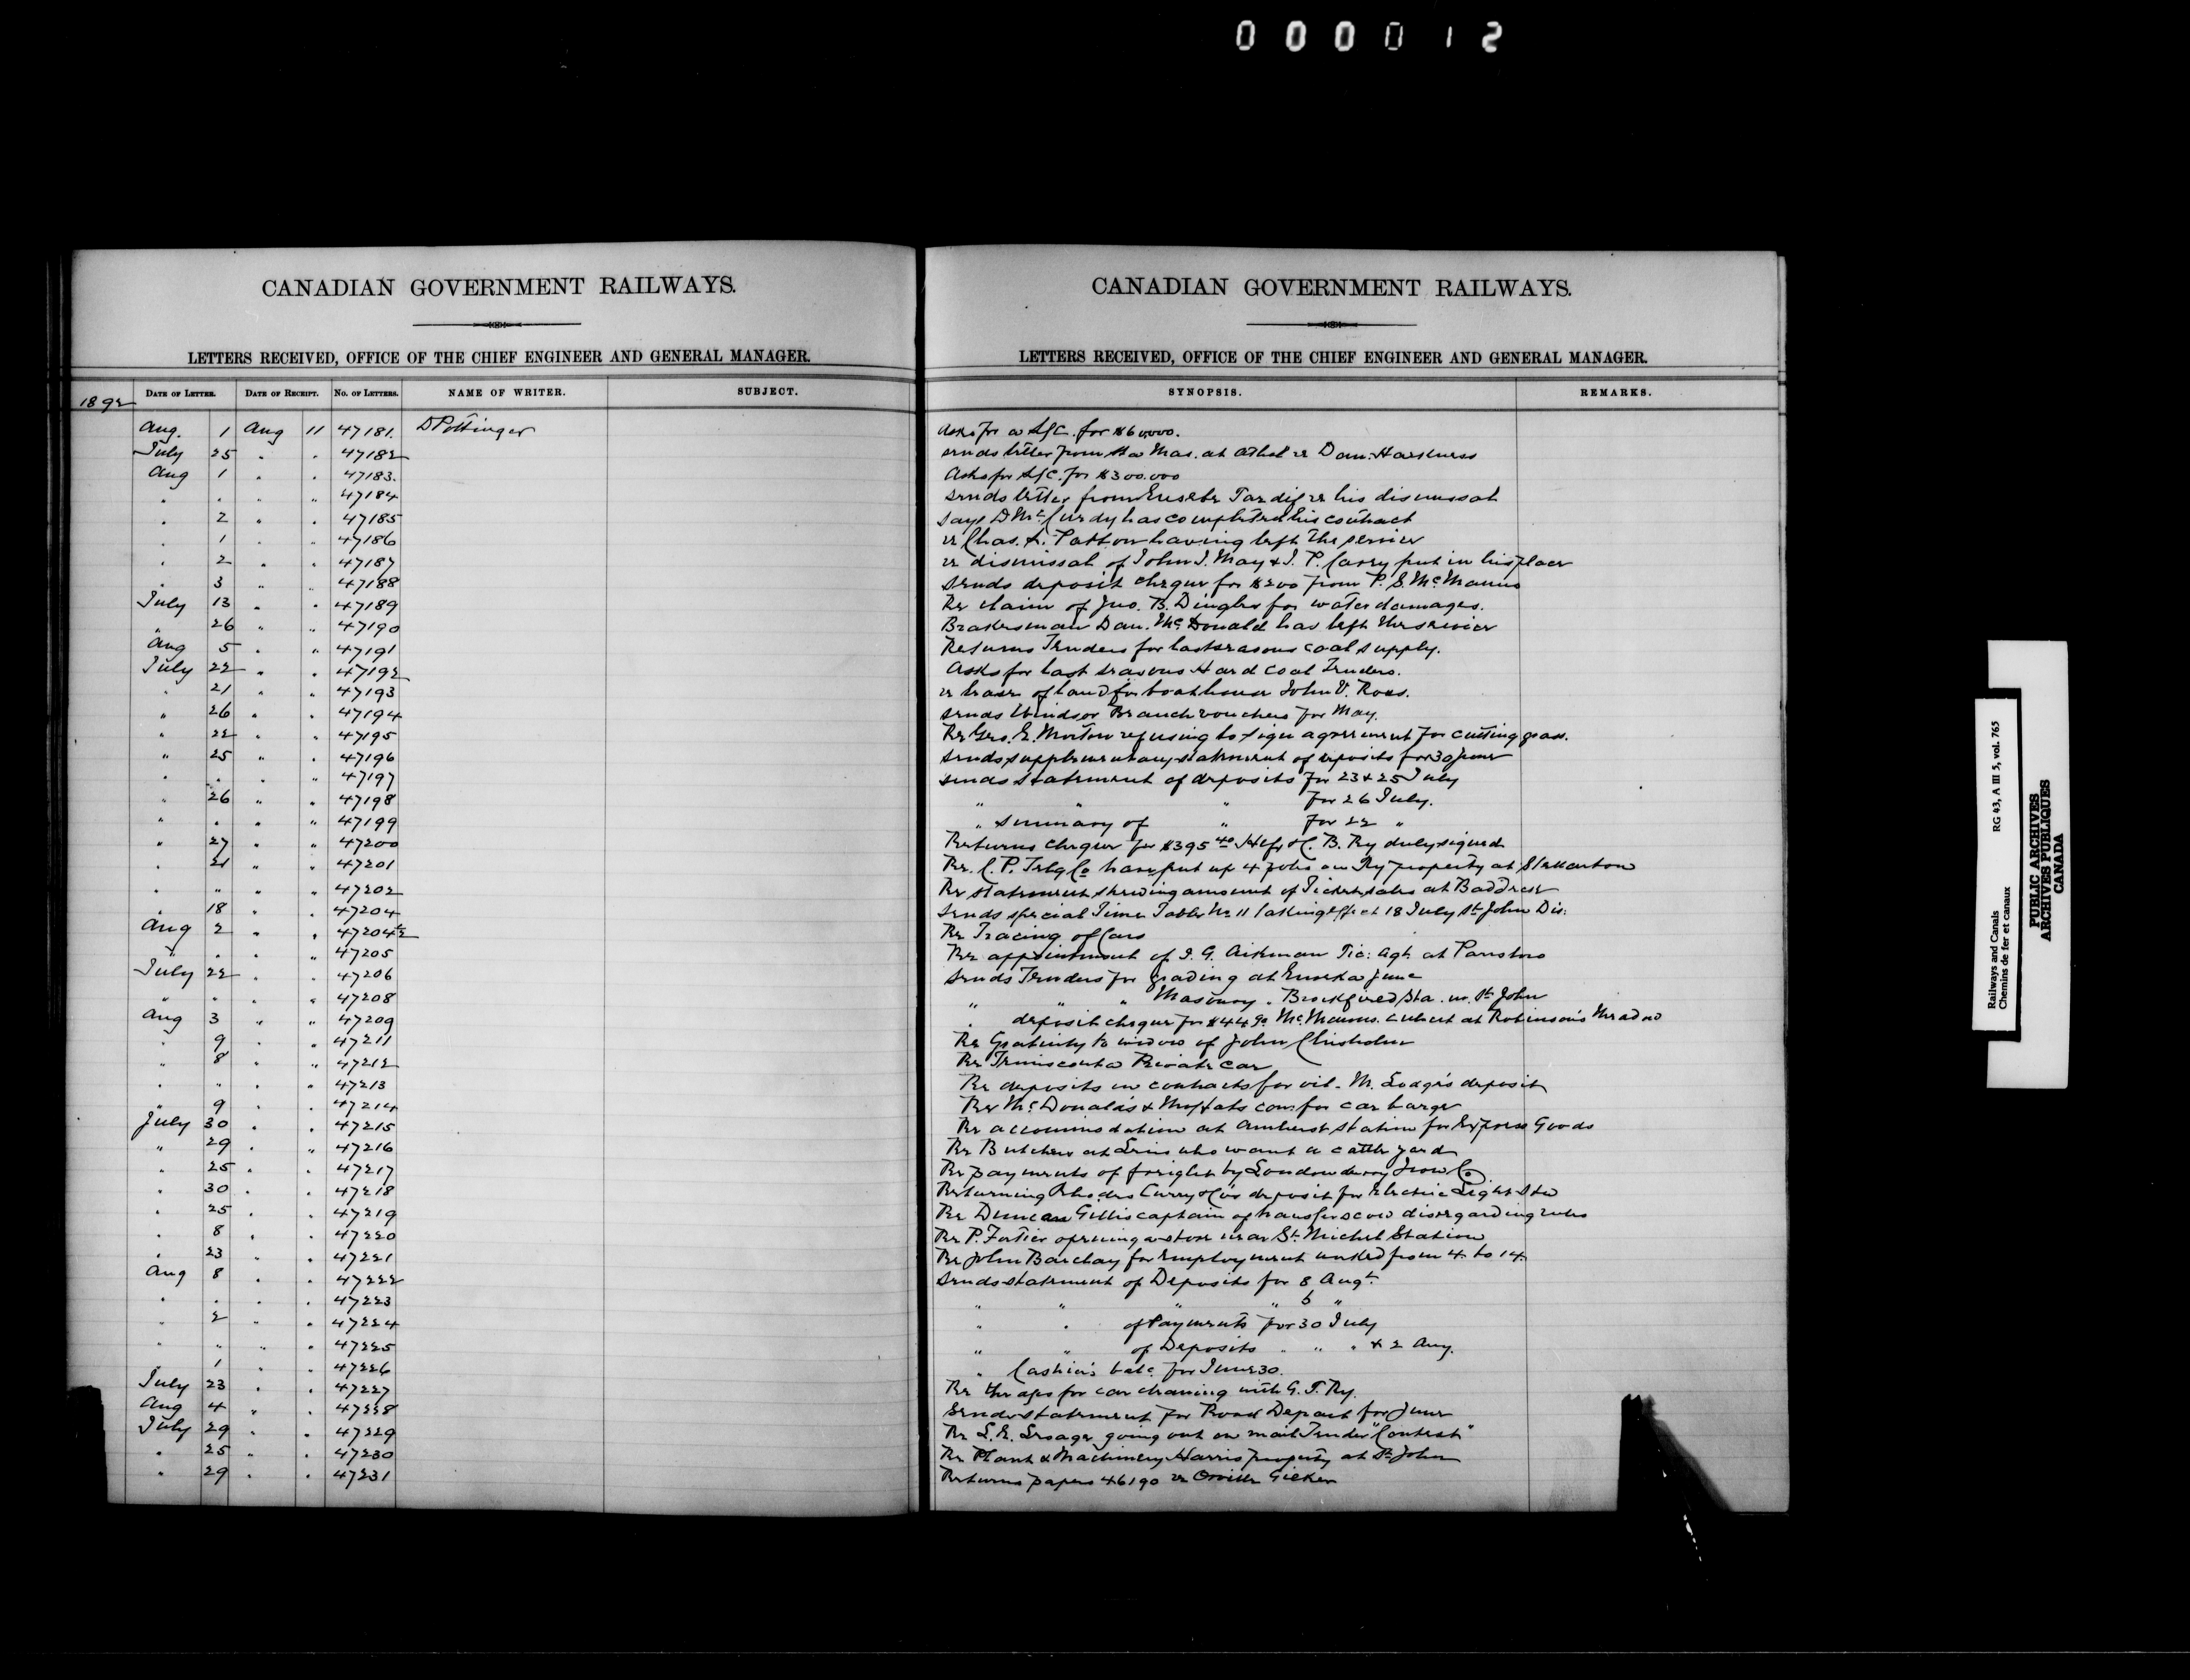 000012
CANADIAN GOVERNMENT RAILWAYS.
LETTERS RECEIVED, OFFICE OF THE CHIEF ENGINEER AND GENERAL MANAGER.
1892 DATE OF LETTER. DATE OF RECEIPT. NO. OF LETTERS. NAME OF WRITER. SUBJECT.
Aug. 1 Aug 11 47181. D Pottinger
July 25 " " 47182
Aug 1 " " 47183.
" " " " 47184
" 2 " " 47185
" 1 " " 47186
" 2 " " 47187
" 3 " " 47188
July 13 " " 47189
" 26 " " 47190
Aug 5 " " 47191
July 22 " " 47192
" 21 " " 47193
" 26 " " 47194
" 22 " " 47195
" 25 " " 47196
" " " " 47197
" 26 " " 47198
" " " " 47199
" 27 " " 47200
" 21 " " 47201
" " " " 47202
" 18 " " 47204
Aug 2 " " 47204½
" " " " 47205
July 22 " " 47206
" " " " 47208
Aug 3 " " 47209
" 9 " " 47211
" 8 " " 47212
" " " " 47213
" 9 " " 47214
July 30 " " 47215
" 29 " " 47216
" 25 " " 47217
" 30 " " 47218
" 25 " " 47219
" 8 " " 47220
" 23 " " 47221
Aug 8 " " 47222
" " " " 47223
" 2 " " 47224
" " " " 47225
" 1 " " 47226
July 23 " " 47227
Aug 4 " " 47228
July 29 " " 47229
" 25 " " 47230
" 29 " " 47231
CANADIAN GOVERNMENT RAILWAYS.
LETTERS RECEIVED, OFFICE OF THE CHIEF ENGINEER AND GENERAL MANAGER.
SYNOPSIS. REMARKS.
Asks for a L/C. for $60,000.
sends letter from Sta Mas. at Athol re Dan. Harkness
Asks for L/C. for $300.000
sends letter from Eusebe Tardif re his dismissal
says D McCurdy has completed his contract
re Chas. Patton having left the service
re dismissal of John J. May & J. P. Carey put in his place
sends deposit cheque for $200 from P. S. McManus
Re claim of Jno. B. Dingler for water damages.
Brakesman Dan. McDonald has left the service
Returns Tenders for last seasons coal supply.
Asks for last seasons Hard Coal Tenders.
re lease of land for boathouse John V. Ross.
sends Windsor Branch vouchers for May.
Re Geo. E. Morton refusing to sign agreement for cutting grass.
sends supplementary statement of deposits for 30 June
sends statement of deposits for 23 & 25 July
" " " for 26 July.
" summary of " for 22 "
Returns cheque for $395 40 B. Ry duly signed
Re. C. P. Telg Co have put up 4 poles on Ry property at Stellarton
Re statement shewing amount of Ticket sales at Baddeck
Sends special Time Table No 11 taking effect 18 July St John Dis:
Re Tracing of Cars
Re appointment of J. G. Aikman Tic: Agt. at Parrsboro
Sends Tenders for grading at Eureka June
" " " Masonry . Brookfield Sta. nr. St John
" deposit cheque for $449 McManus. culvert at Robinson's
Re Gratuity to widow of John Chisholm
Re Temiscouata Private Car
Re deposits on contracts for oil. M. Lodge's deposit
Re McDonald's & Moffats com: for car barge
Re accommodation at Amherst Station for Express Goods
Re Butchers at Levis who want a cattle yard
Re payments of freight by Londonderry Iron Co
Returning Rhodes Curry & Co's deposit for Electric Light Sta
Re Duncan Gillis captain of transfer scow disregarding rules
Re P. Fortier opening a store near St. Michel Station
Re John Barclay for Employment worked from 4 to 14
Sends statement of Deposits for 8 Augt.
" " " " 5 "
" " of Payments for 30 July
" " of Deposits " " " & 2 Aug.
" Cashier's bale for June 30.
Re the for car cleaning with G. T. Ry.
Sends statement for Road Depart for June
Re L. E. going out on mail Tender "Contest"
Re Plant & Machinery Harris property at St John
Returns papers 46190 re Orville Gicker
Railways and Canals RG 43, A III 5, vol. 765
Chemins de fer et canaux
PUBLIC ARCHIVES
ARCHIVES PUBLIQUES
CANADA